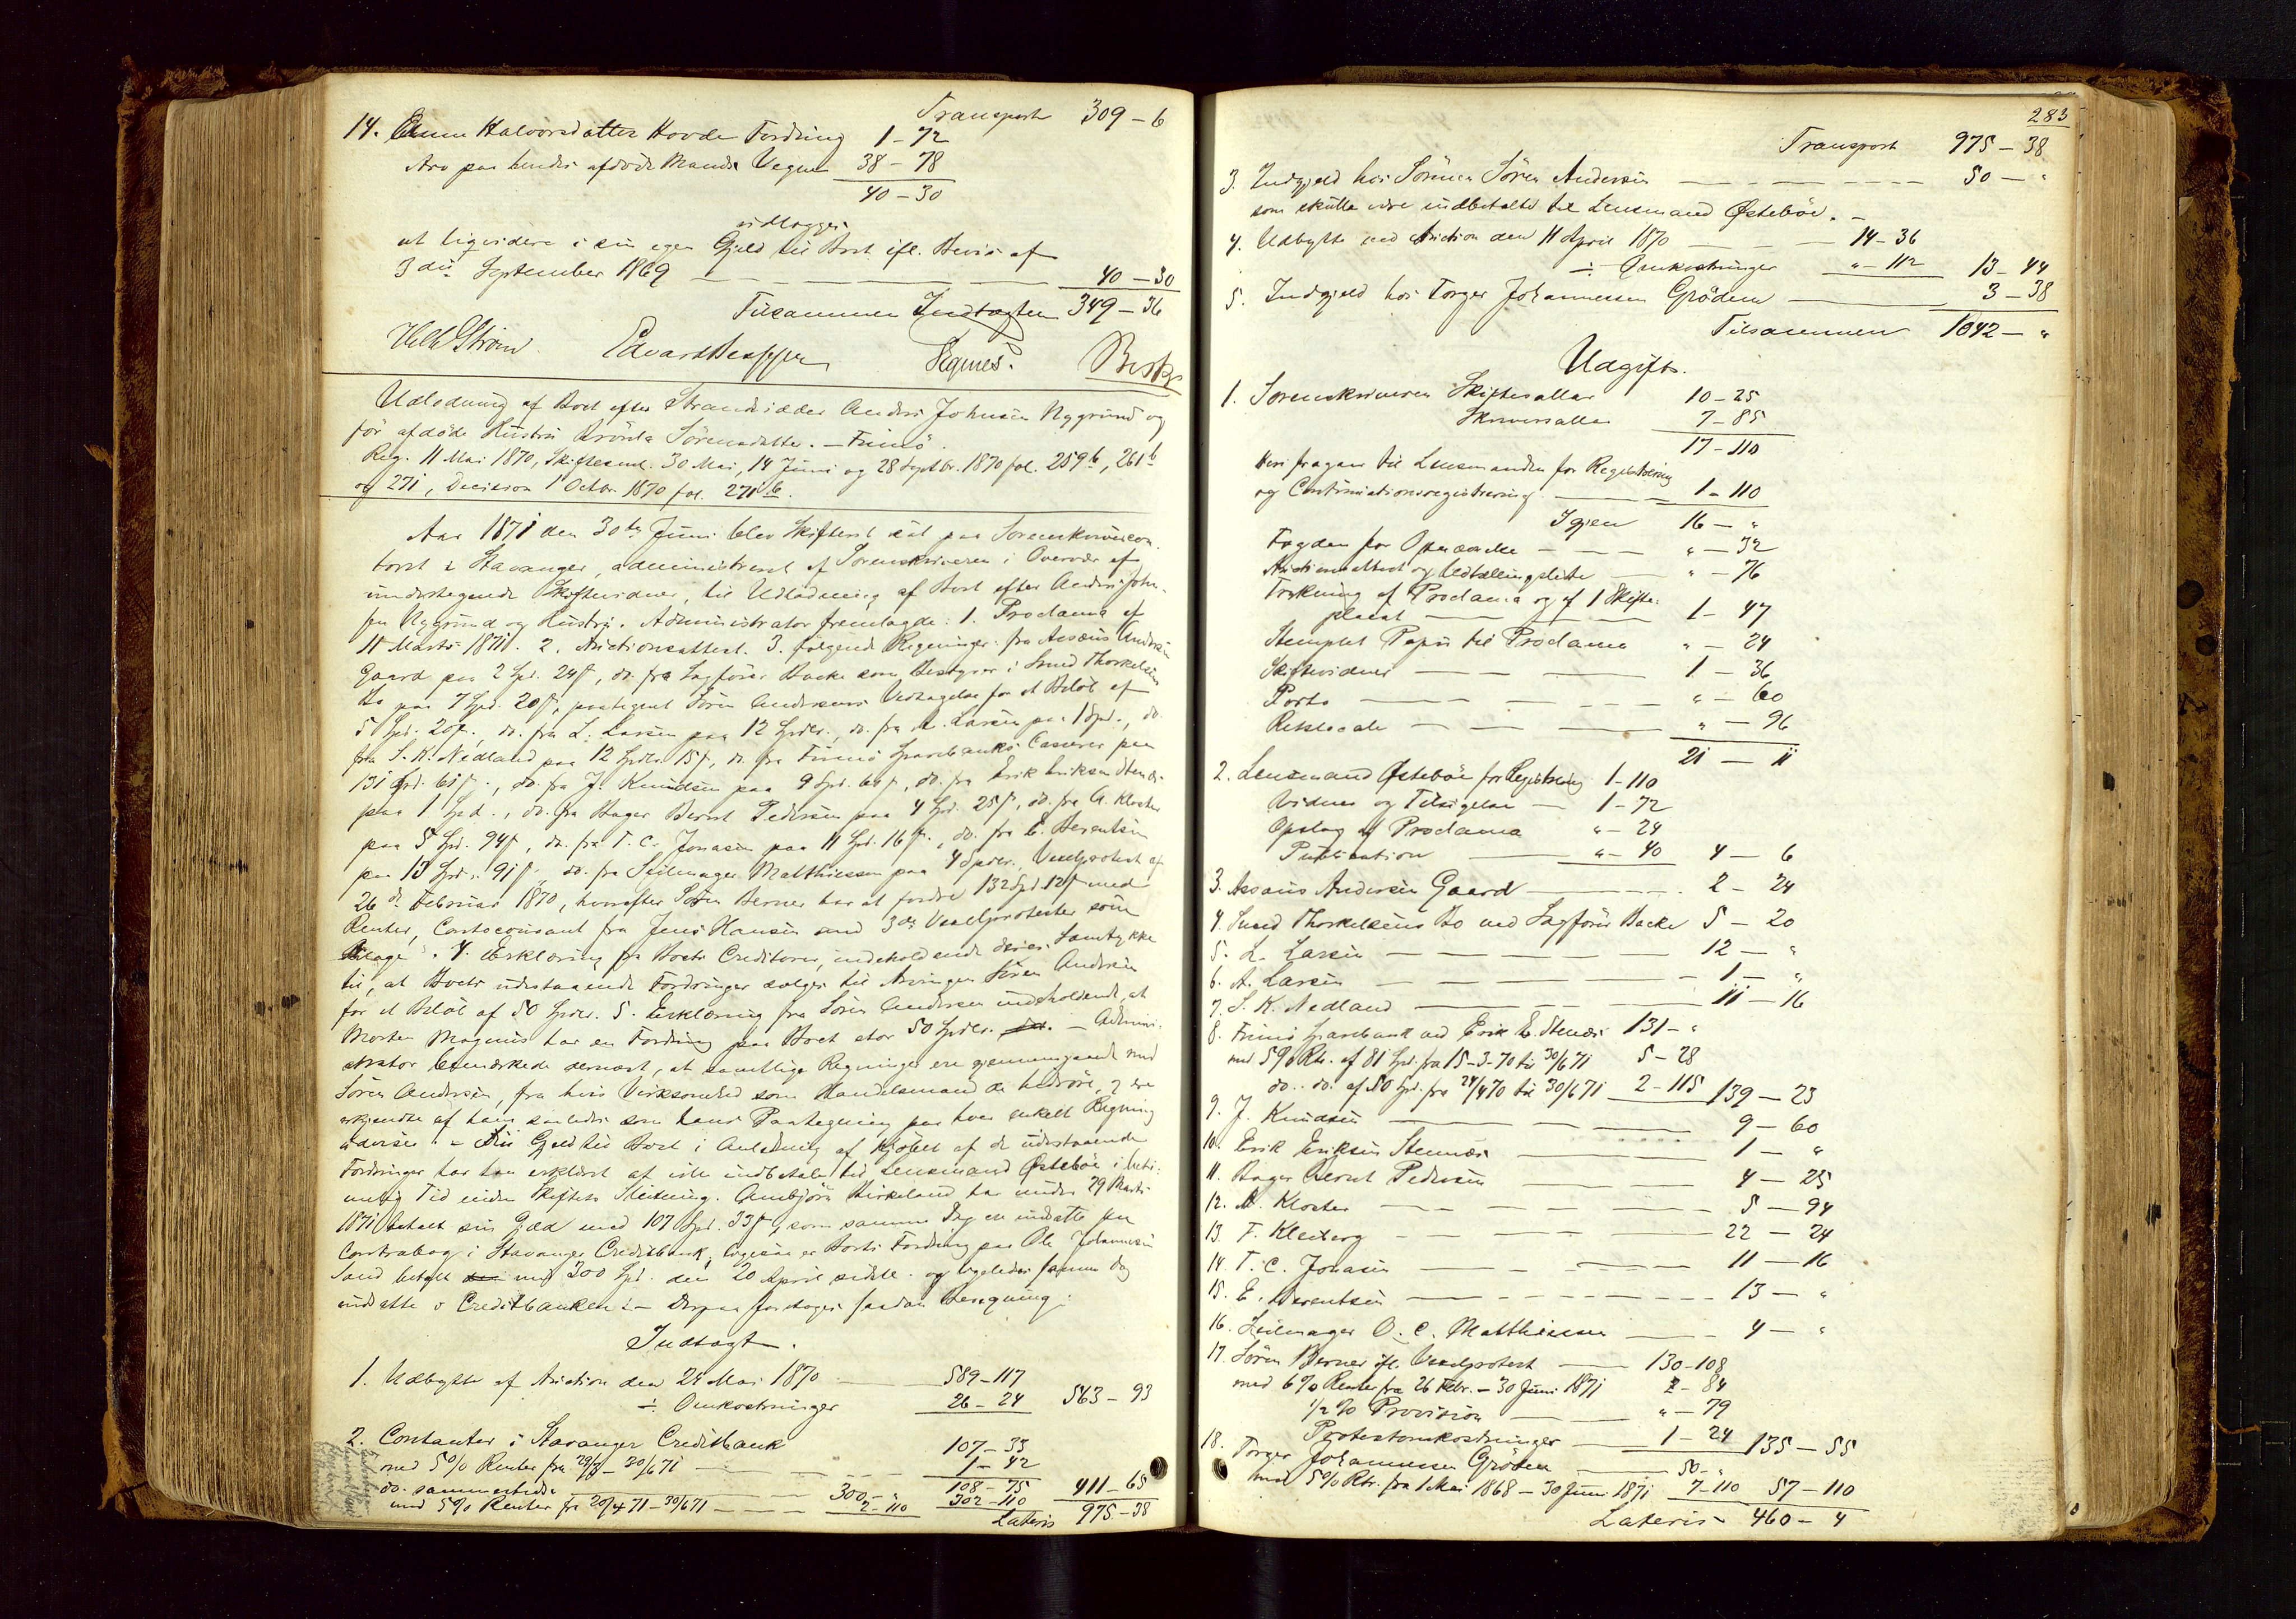 Transport 309 - 6
14. Anne Halvorsdatter Hovde Fordring 1 - 72
Arv paa hendes afdöde Mands Vegne 38 - 78
40 - 30
udlægges
at liqvidere i sin egen Gjeld til Boet ifl. Bevis af
3die September 1869 — — — 40 - 30
Tilsammen Indtægten 349 - 36
Udlodning af Boet efter Strandsidder Anders Johnsen Nygrund og
før afdöde Hustru Sörensdatter. -
Reg. 11 Mai 1870, Skiftesaml. 30 Mai, 14 Juni og 28 Septbr. 1870 fol. 259b, 261b
og 271, Decision 1 Octbr. 1870 fol. 271b.
Aar 1871 den 30te Juni blev Skifteret sat paa Sorenskrivercon-
toret i Stavanger, administreret af Sorenskriveren i Overvær af
undertegnede Skiftevidner, til Udlodning af Boet efter Anders John-
sen Nygrund og Hustru. Administrator fremlagde: 1. Proclama af
11 Marts 1871. 2. Auctionsattest. 3. følgende Regninger: fra Asseus Andersen
Gaard paa 2 Spd. 24 ſ, do. fra Sagfører Bache som Bestyrer i Svend Thorkelsens
Bo paa 7 Spd. 20 ſ, paategnet Sören Andersens Vedtagelse for et Belöb af
5 Spd. 20 ſ., do. fra L. Larsen paa 12 Spdlr., do. fra A. Larsen paa 1 Spd., do.
fra S. K. Nedland paa 12 Spdlr. 15 ſ, do. fra Sparebanks Casserer paa
131 Spd. 61 ſ., do. fra J. Knudsen paa 9 Spd. 60 ſ, do. fra Erik Eriksen
paa 1 Spd., do. fra Bager Bernt Pedersen paa 4 Spd. 25 ſ, do. fra A. Kloster
paa 5 Spd. 94 ſ, do. fra T. C. Jonasen paa 11 Spd. 16 ſ., do. fra E. Berentsen
paa 13 Spd. 91 ſ, do. fra Seilmager Matthiessen paa 4 Spdlr. Vexelprotest af
26de Februar 1870, hvorefter Sören Berner har at fordre 132 Spd. 12 ſ med
Renter, Contocourant fra Jens Hansen med 3de Vexelprotester som
Bilage. 4. Erklæring fra Boets Creditorer, indeholdende deres Samtykke
til, at Boets udestaaende Fordringer sælges til Arvingen Sören Andersen
for et Belöb af 50 Spdlr. 5. Erklæring fra Sören Andersen indeholdende, at
Morten Magnus har en Fordring paa Boet stor 50 Spdlr. - Admini-
strator bemærkede dernæst, at samtlige Regninger ere gjennemgaaede med
Sören Andersen, fra hvis Virksomhed som Handelsmand de hidröre, og ere
erkjendte af ham saaledes som hans Paategning paa hver enkelt Regning
udviser. - Sin Gjeld til Boet i Anledning af Kjöbet af de udestaaende
Fordringer har han erklæret at ville indbetale til Lensmand Østeböe i beti-
melig Tid inden Skiftets Slutning. Aanbjörn Birkeland har under 29 Marts
1871 betalt sin Gjæld med 107 Spd. 33 ſ, som samme Dag ere indsatte paa
Contrabog i Stavanger Creditbank; ligesaa er Boets Fordring paa Ole Johannesen
Sand betalt med 300 Spd. den 20 April sidstl. og ligeledes samme Dag
indsatte i Creditbanken: - Derpaa foretoges saadan Beregning:
Indtægt.
1. Udbytte af Auction den 24 Mai 1870 — 589 - 117
÷ Omkostninger 26 - 24 563 - 93
2. Contanter i Stavanger Creditbank 107 - 33
med 5% Renter fra 29/3 - 30/6 71 — 1 - 42
108 - 75
do. sammesteds — 300 - "
med 5% Renter fra 20/4 71 - 30/6 71 — 2 - 110 302 - 110 411 - 65
Lateris 975 - 38
283
Transport 975 - 38
3. Indgjeld hos Sönnen Sören Andersen — — — 50 - "
som skulle være indbetalte til Lensmand Østeböe. -
4. Udbytte ved Auction den 11 April 1870 — — 14 - 36
÷ Omkostninger " - 112 13 - 44
5. Indgjeld hos Torger Johannessen Gröden — 3 - 38
Tilsammen 1042 - "
Udgift.
1. Sorenskriveren Skiftesallar 10 - 25
Skriversallar 7 - 85
17 - 110
Heri fragaar til Lensmanden for Registrering
og Continuationsregistrering — 1 - 110
Igjen 16 - "
Fogden for Opnævnelse — — — " - 32
Auctionsattest og Udtællingsliste — " - 76
Trykning af Proclama og af 1 Skifte-
placat — — — 1 - 47
Stemplet Papir til Proclama " - 24
Skiftevidner — — — 1 - 36
Porto — — — " - 60
Retslocale — — — " - 96
21 - 11
2. Lensmand Østeböe for Registrering 1 - 110
Vidner og Tilsigelse — 1 - 72
Opslag af Proclama " - 24
Publication — " - 40 4 - 6
3. Asseus Andersen Gaard — — 2 - 24
4. Svend Thorkelsens Bo ved Sagförer Bache 5 - 20
5. L. Larsen — — — 12 - "
6. A. Larsen — — — 1 - "
7. S. K. Nedland — — — 11 - 16
8. Sparebank ved Erik E. 131 - "
med 5% Rtr. af 81 Spd. fra 15-3-70 til 30/6 71 5 - 28
do. do. af 50 Spd. fra 24/4 70 til 30/6 71 2 - 115 139 - 23
9. J. Knudsen — — — 9 - 60
10. Erik Eriksen — — 1 - "
11. Bager Bernt Pedersen — — 4 - 25
12. A. Kloster — — — 5 - 94
13. F. Kleiberg — — — 22 - 24
14. T. C. Jonasen — — — 11 - 16
15. E. Berentsen — — — 13 - "
16. Seilmager O. C. Matthiessen — — 4 - "
17. Sören Berner ifl. Vexelprotest — 130 - 108
med 6% Renter fra 26 Febr. - 30 Juni 1871 2 - 84
1/2 % Provision — — " - 79
Protestomkostninger — 1 - 24 135 - 55
18. Torger Johannessen Gröden — 50 - "
med 5% Rtr. fra 1 Mai 1868 - 30 Juni 1871 7 - 110 57 - 110
Lateris - 460 - 4